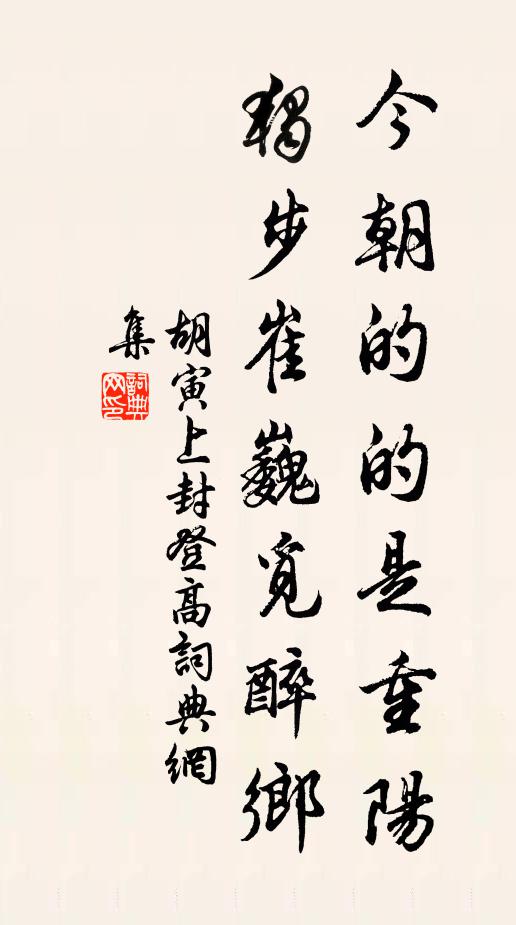 今朝的的是重陽
獨步崔巍覓醉鄉
胡寅上封登高詞典網
集
詞典
网印